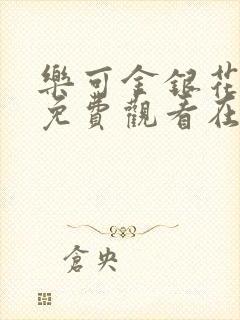 樂可金銀花
免費觀看在
倉央